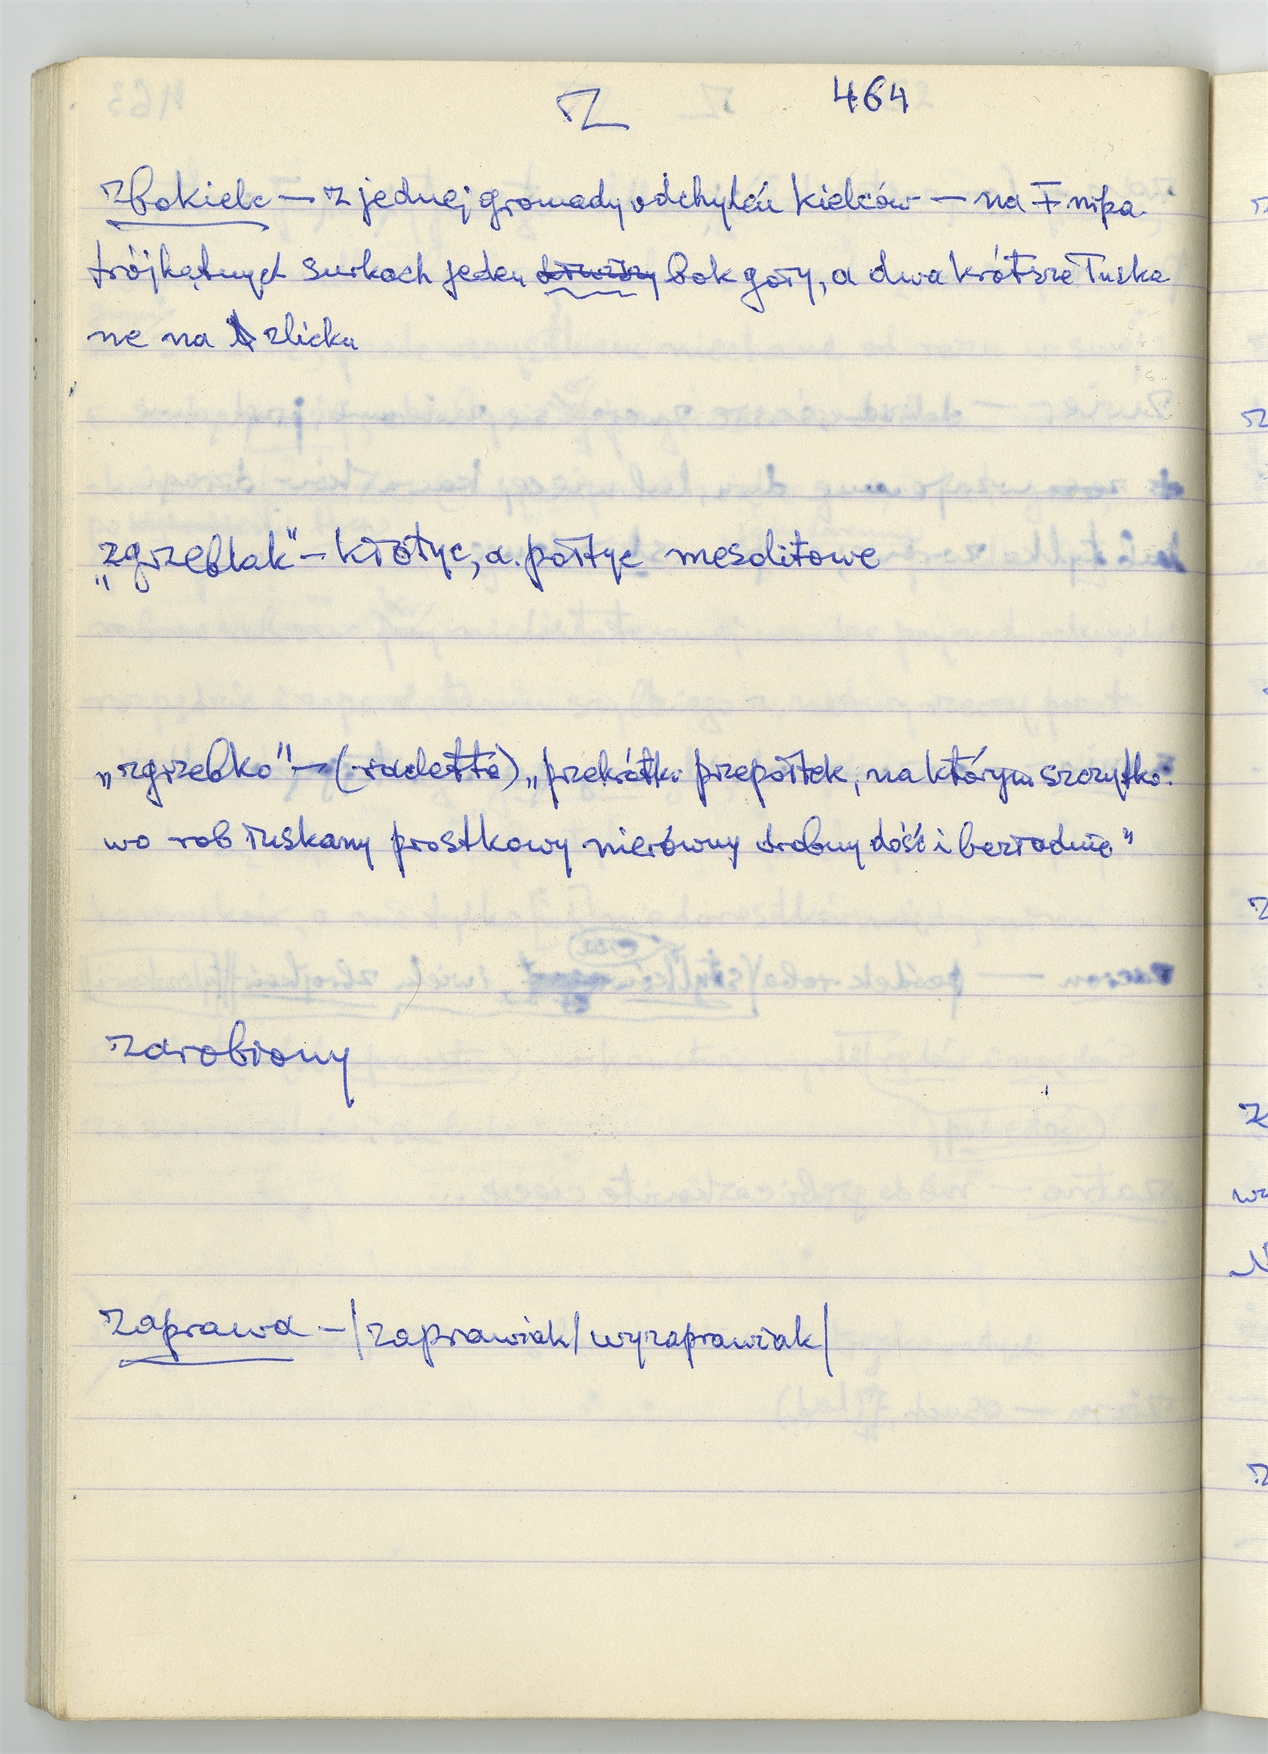 Z 464
zbokielc — z jednej gromady odchyleń kielców — na
trójkątnych surkach jeden bok goły, a dwa krótsze łuska
ne na zlicku
„zgrzeblak" — kłotyc, a. półtyc mezolitowe
„zgrzebko" — „przekrótki przepołtek, na którym szczytko-
wo rob łuskany prostkowy nierówny drobny dość i bezładnie"
zdrobiony
zaprawa — /zaprawiak/ wyzaprawiak/